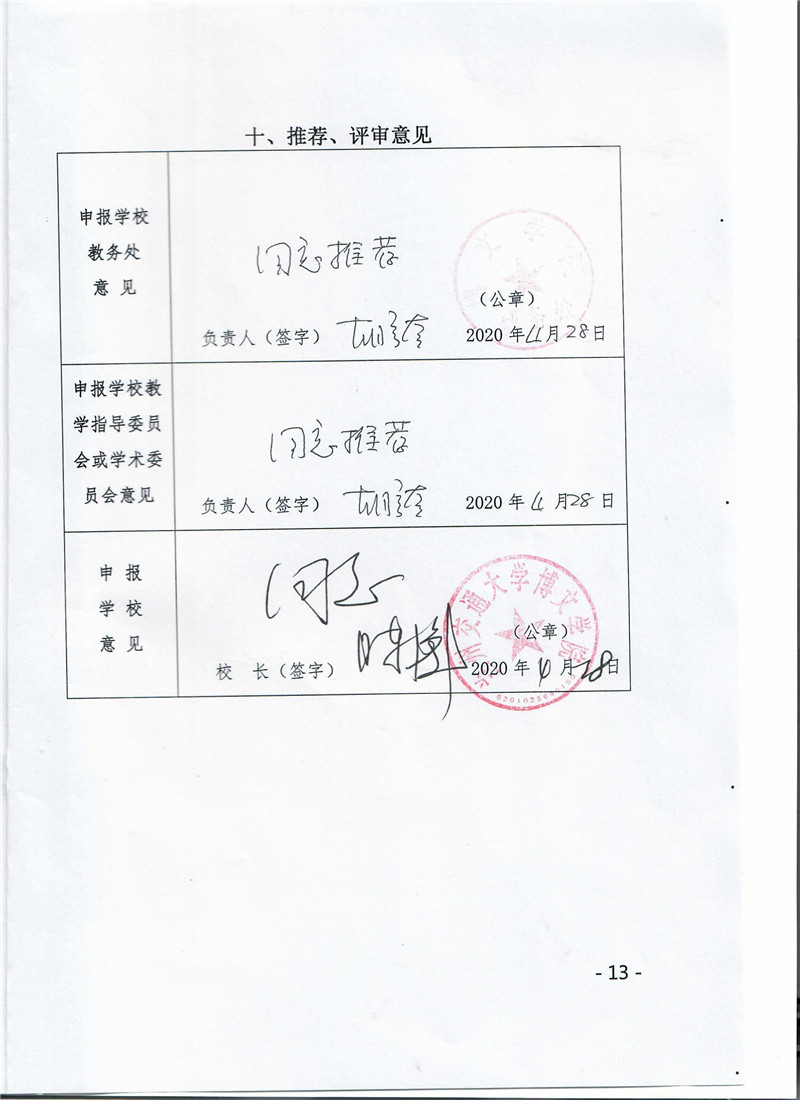 十、推荐、评审意见
申报学校
教务处
意 见
同意推荐
(公章)
负责人(签字)
2020 年 4 月 28 日
申报学校教
学指导委员
会或学术委
员会意见
同意推荐
负责人(签字)
2020 年 4 月 28 日
申 报
学 校
意 见
同意
兰州交通大学博文学院
(公章)
校 长(签字)
2020 年 4 月 28 日
- 13 -